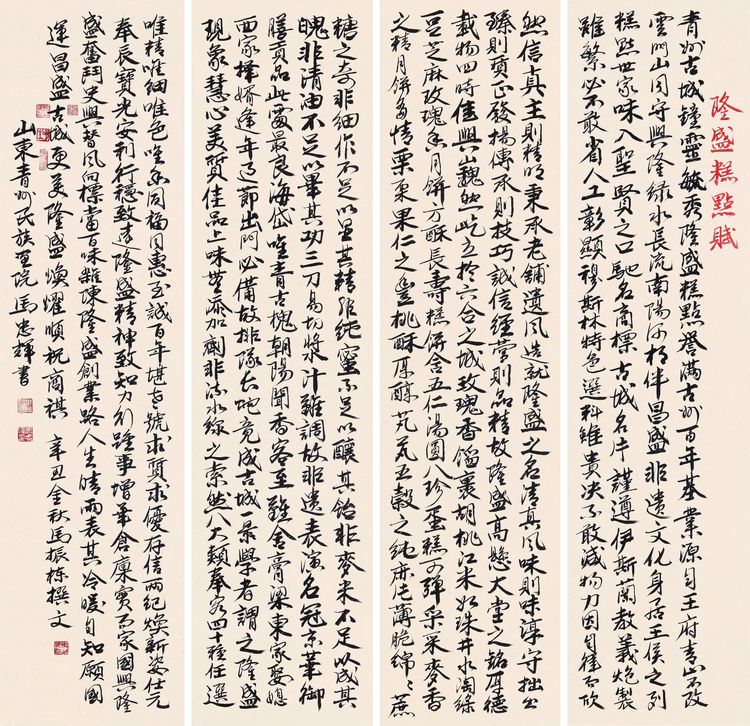 隆盛糕點賦
青州古城鐘靈毓秀隆盛糕點譽滿古州百年基業源自王府青山不改
雲門山同守興隆綠水長流南陽河相伴昌盛非遺文化身居王侯之列
糕點世家味入聖賢之口馳名商標古城名片謹遵伊斯蘭教義炮製
雖繁必不敢省人工彰顯穆斯林特色選料雖貴決不敢減物力因自律而欣
然信真主則精明秉承老舖遺風造就隆盛之名清真風味則味淳守拙
臻則積正發揚傳承則技巧誠信經營則品精故隆盛高懸大堂之銘厚德
載物四時佳興巍然屹立於六合之城玫瑰香餡裹胡桃江米如珠井水淘綠
豆芝麻玫瑰冬月餅方酥長壽糕餅含五仁湯圓八珍蛋糕可彈采采麥香
之精月餅多情栗棗果仁之豐桃酥厚醇芃芃五穀之純麻片薄脆綿綿蔗
糖之奇非細作不足以呈其精雅純蜜不足以釀其飴非麥米不足以成其
魄非清油不足以畢其功三刀易切漿汁難調故非遺表演名冠京華御
膳貢品此當最良海岱唯青古槐朝陽聞香客至難舍膏粱東家娶媳
西家擇婿逢年過節出門必備故排隊大地竟成古城一景學者謂之隆盛
現象慧心美質佳品上味無添加劑非流水線之索然八大類奉客四十種任選
唯精唯細唯色唯香同福同惠至誠百年堪老號求質求優存信兩紀煥新姿仕元
奉辰寶光安利行穩致遠隆盛精神致知力行踐事增華倉廩實而家國興隆
盛奮鬥史興替風向標當百味雜陳隆盛創業路人生晴雨表其冷暖自知願國
運昌盛古城更美隆盛煥耀順祝商祺 辛丑金秋馬振棟撰文
山東青州民族畫院馬忠輝書